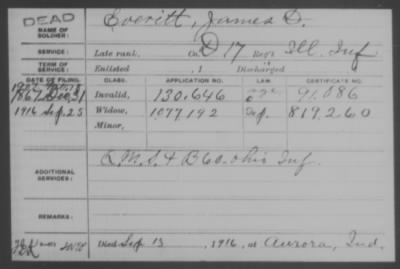 DEAD
NAME OF SOLDIER:
Everitt, James D.
SERVICE:
Late rank, Co. D 17 Reg't Ill. Inf
TERM OF SERVICE:
Enlisted , 1 Discharged
DATE OF FILING. CLASS. APPLICATION NO. LAW. CERTIFICATE NO.
1867 Dec 31 Invalid, 130.646 91.086
1916 Sep. 25 Widow, 1077192 Sep. 819.260
Minor,
ADDITIONAL SERVICES:
Q.M.S. & B 60. Ohio Inf.
REMARKS:
Died Sep 13, 1916, at Aurora, Ind.